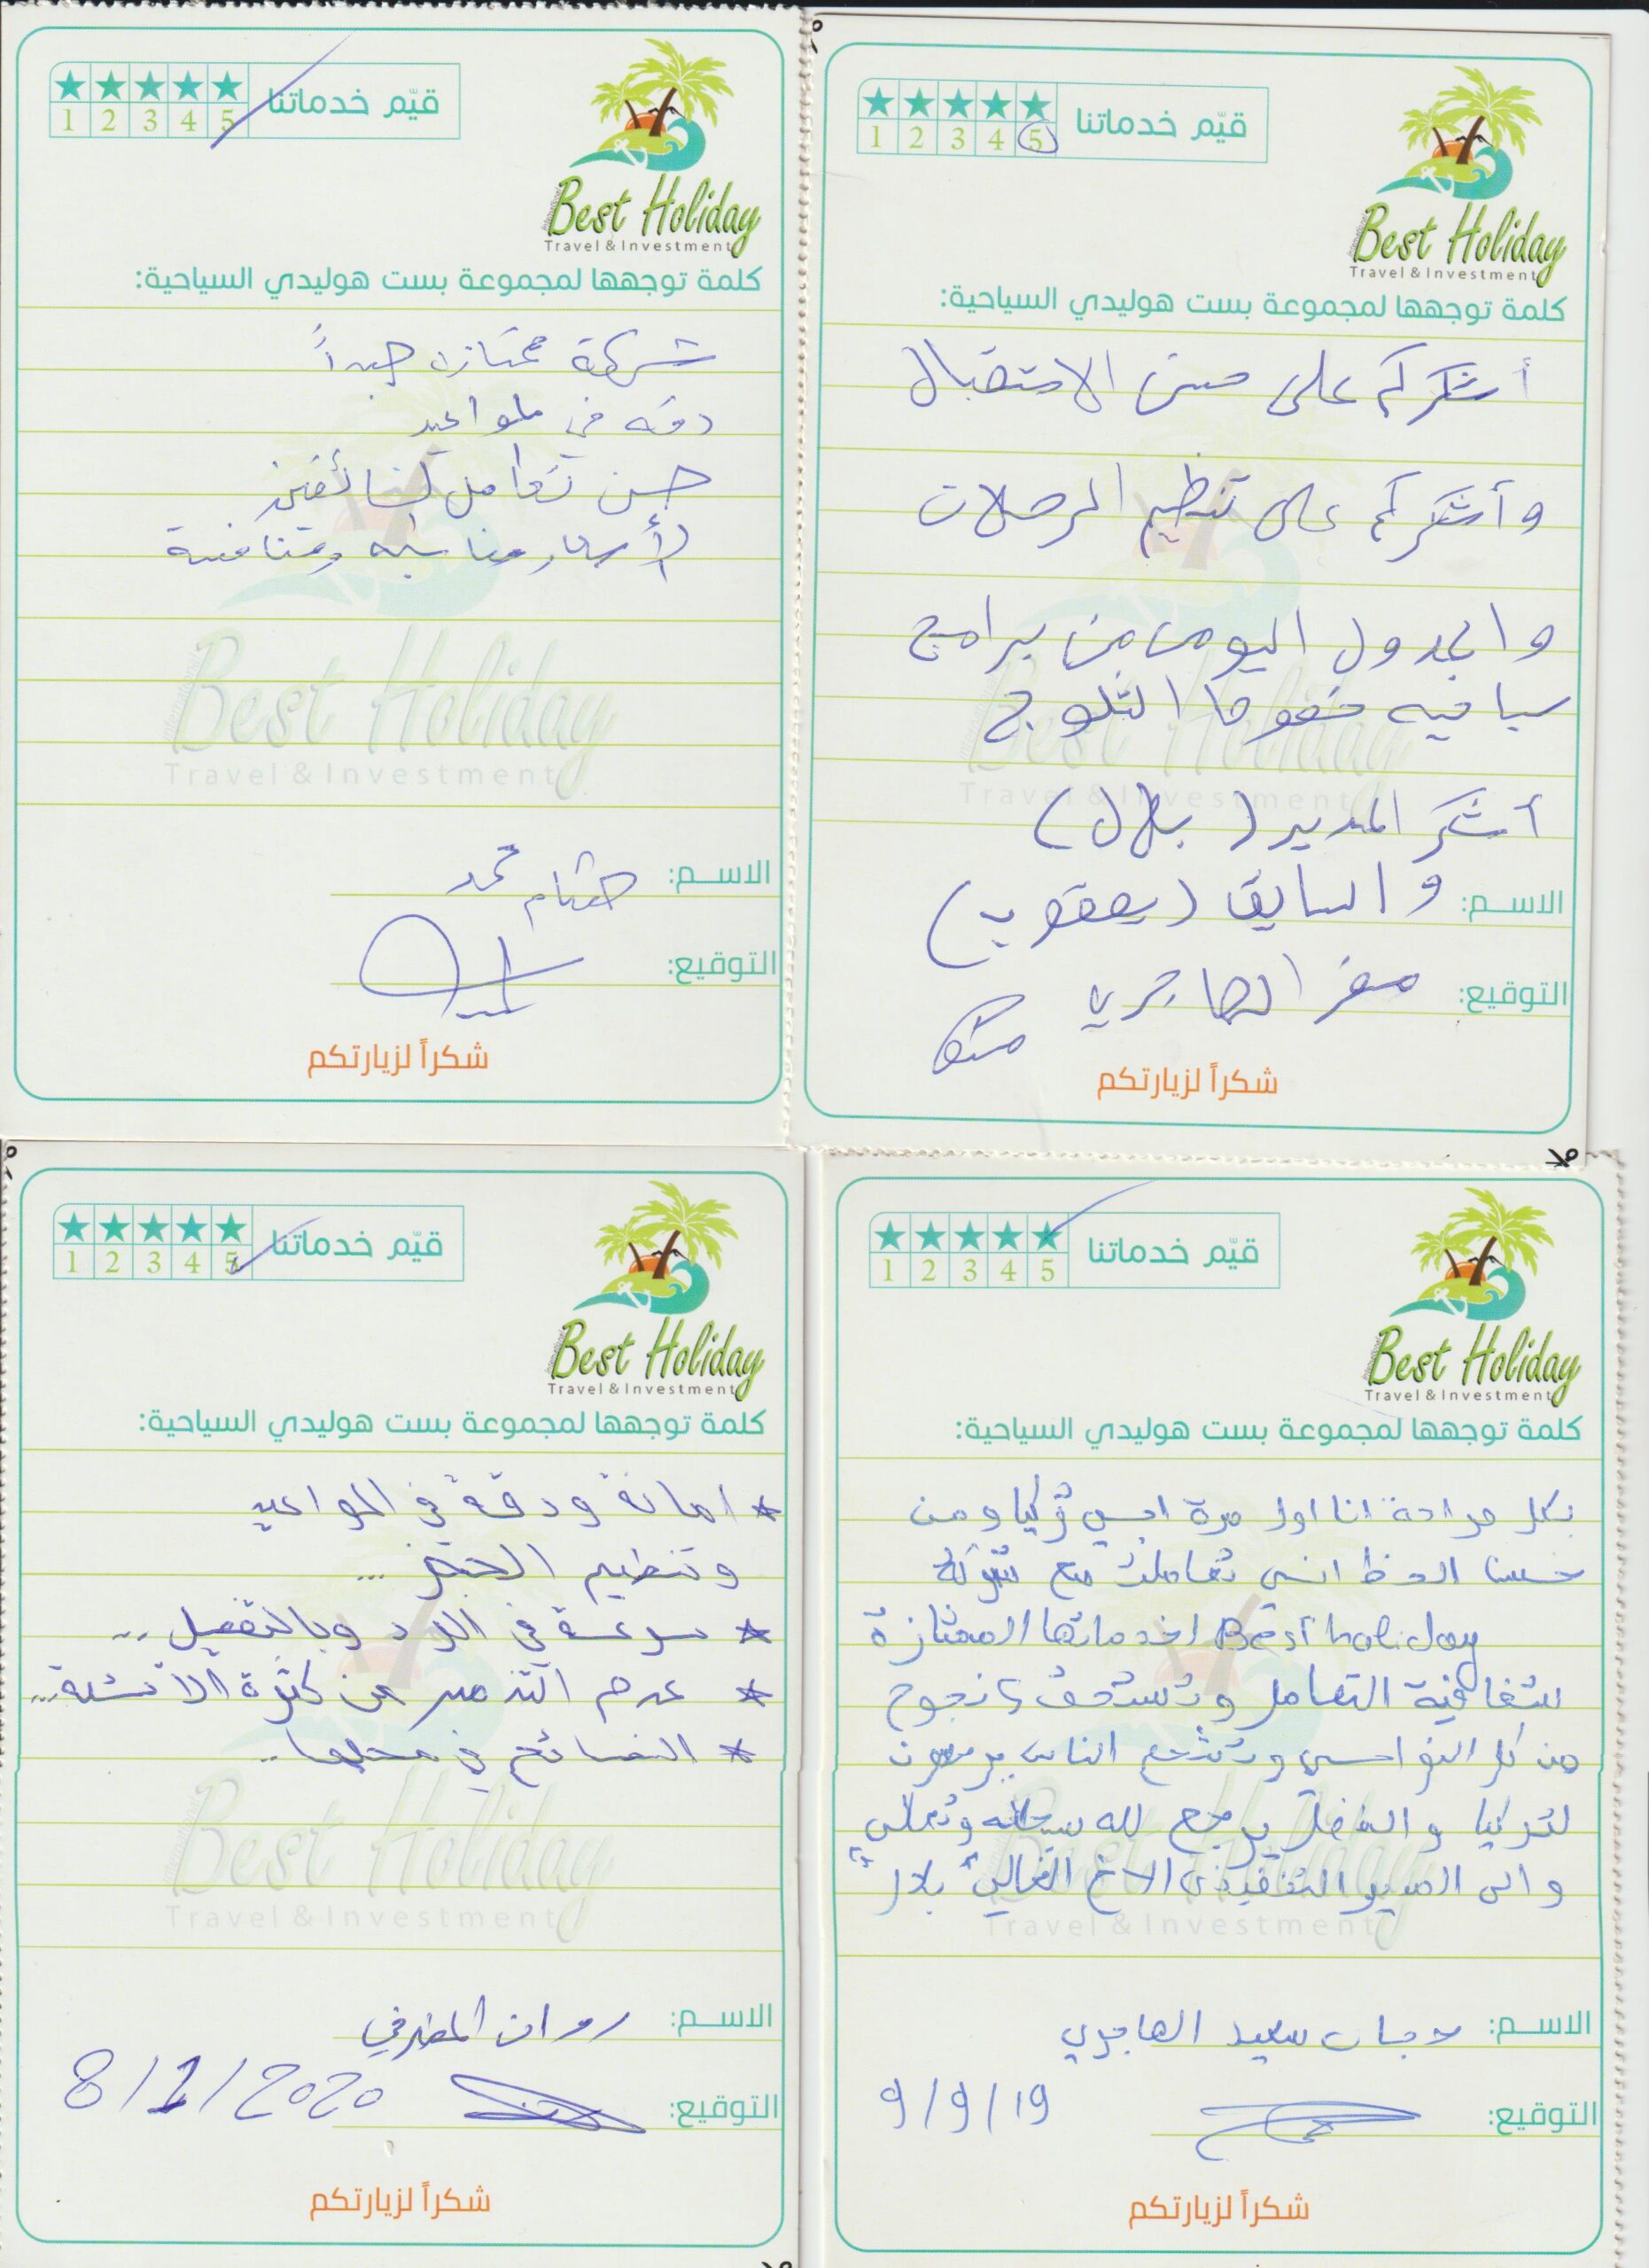 قيّم خدماتنا
1 2 3 4 5
Best Holiday
Travel & Investment
كلمة توجهها لمجموعة بست هوليدي السياحية:
شركة ممتازه جداً
دقه في لمواعيد
حسن تعامل لسائقين
لأسعار مناسبه ومتنافسة
الاسم: هشام محمد
التوقيع:
شكراً لزيارتكم
قيّم خدماتنا
1 2 3 4 5
Best Holiday
Travel & Investment
كلمة توجهها لمجموعة بست هوليدي السياحية:
أشكركم على حسن الاستقبال
وأشكركم على تنظيم الرحلات
والجدول اليومي من برامج
سياحيه خصوصا الثلوج
أشكر المدير (بلال)
الاسم: والسايق (يعقوب)
التوقيع: الهاجري
شكراً لزيارتكم
قيّم خدماتنا
1 2 3 4 5
Best Holiday
Travel & Investment
كلمة توجهها لمجموعة بست هوليدي السياحية:
* امانة ودقة في المواعيد
وتنظيم الحجز ...
* سرعة في الرد وبالتفصيل ..
* عدم التذمر من كثرة الاسئلة...
* النصائح في محلها..
الاسم: روان المطرفي
التوقيع: 8/1/2020
شكراً لزيارتكم
قيّم خدماتنا
1 2 3 4 5
Best Holiday
Travel & Investment
كلمة توجهها لمجموعة بست هوليدي السياحية:
بكل صراحة انا اول مرة اجي تركيا ومن
حسن الحظ اني تعاملت مع شركة
Best holiday اخدماتها الممتازة
شفافية التعامل وتستحق نجوم
من كل النواحي وتشجع الناس يرجعون
لتركيا والفضل يرجع لله سبحانه وتعالى
والى المدير التنفيذي الاخ الغالي "بلال"
الاسم: سعيد الهاجري
التوقيع: 9/9/19
شكراً لزيارتكم